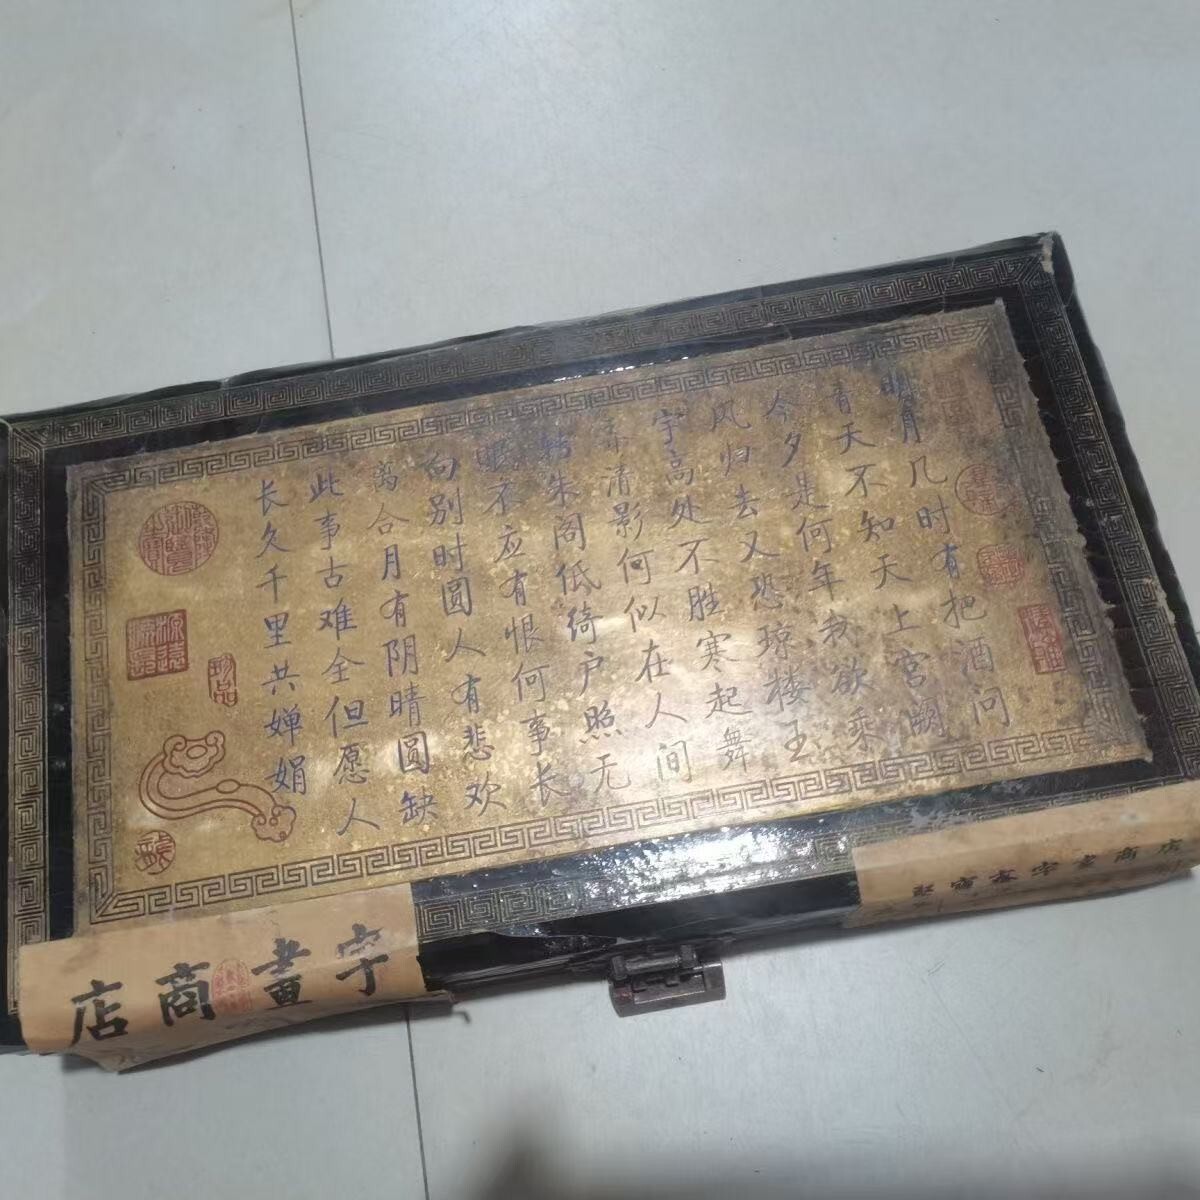 明月几时有把酒问
青天不知天上宫阙
今夕是何年我欲乘
风归去又恐琼楼玉
宇高处不胜寒起舞
弄清影何似在人间
转朱阁低绮户照无
眠不应有恨何事长
向别时圆人有悲欢
离合月有阴晴圆缺
此事古难全但愿人
长久千里共婵娟
珍品
字畫商店
聚寶齋字畫商店